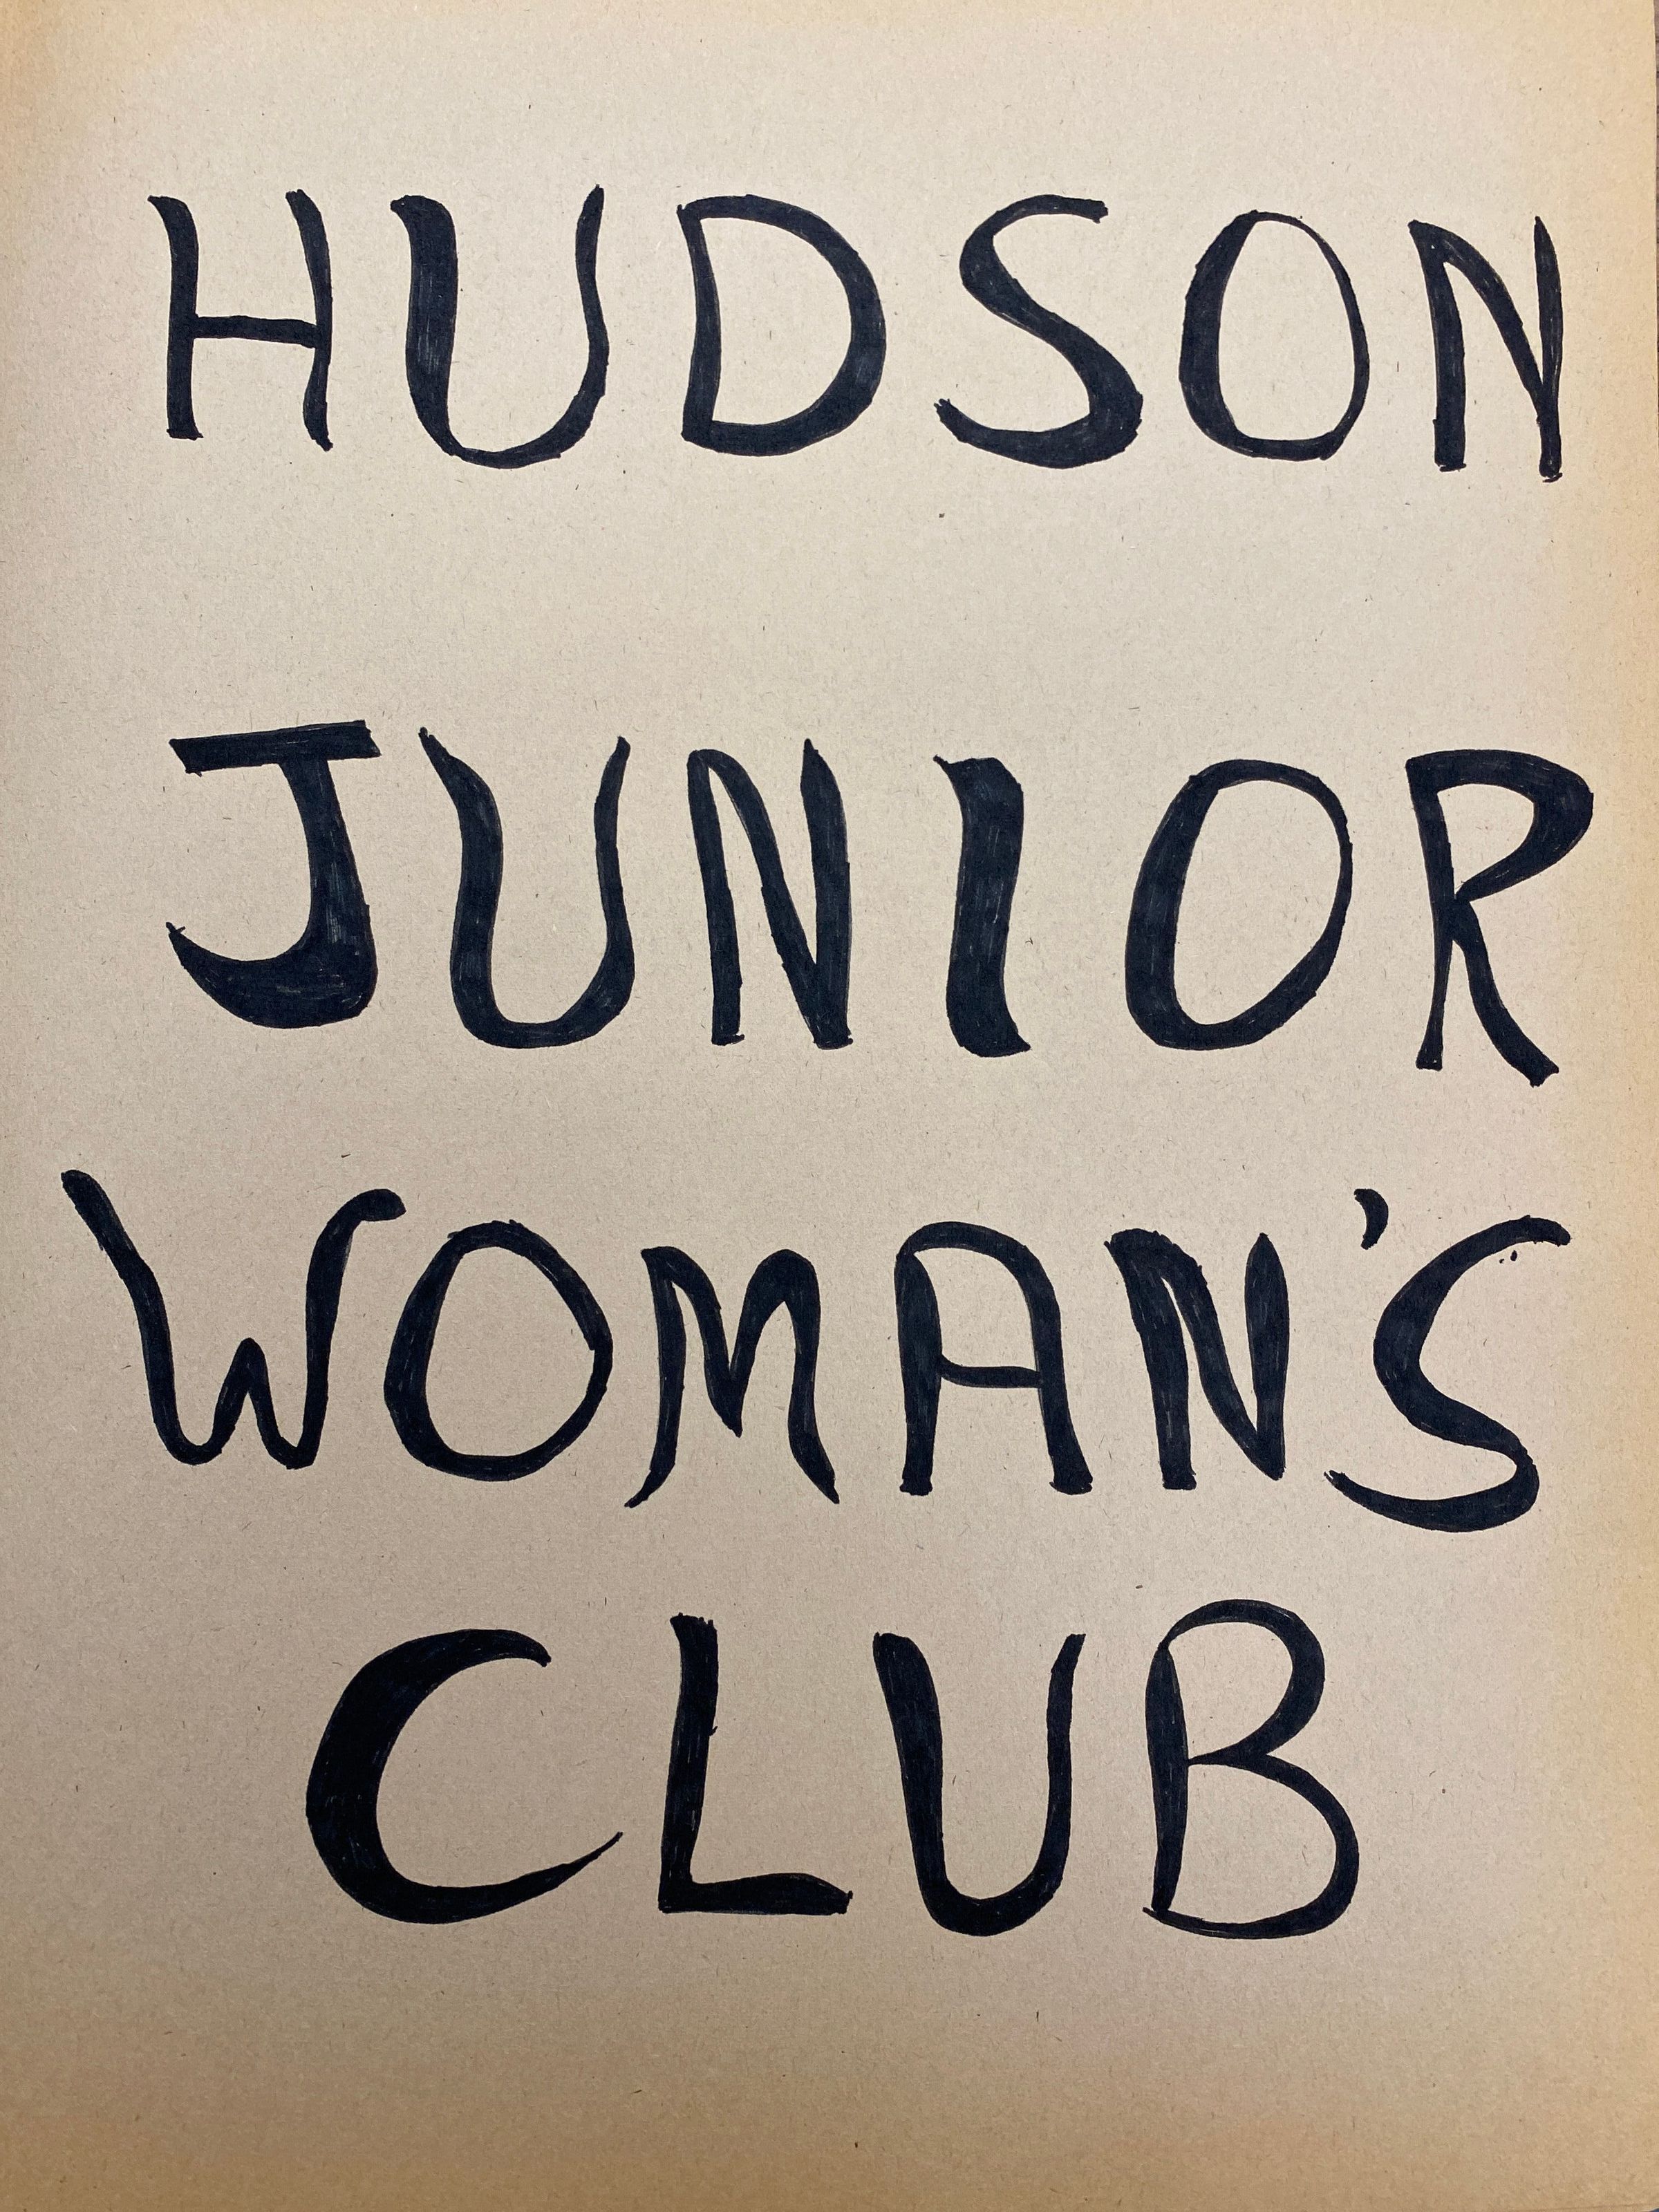 HUDSON
JUNIOR
WOMAN'S
CLUB